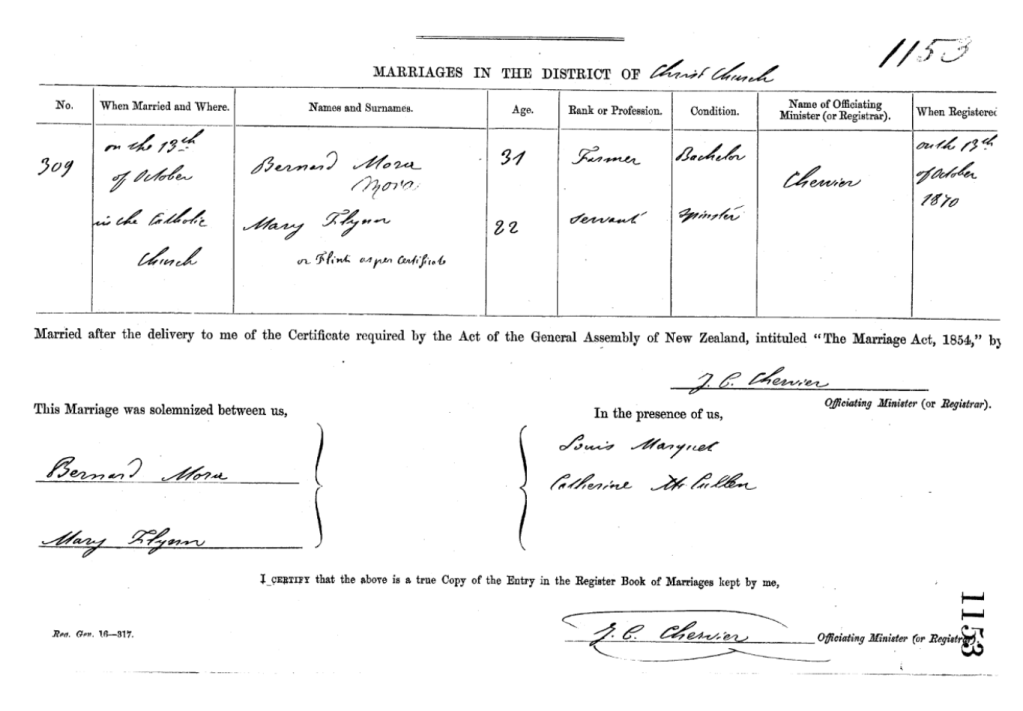 1153
MARRIAGES IN THE DISTRICT OF Christ Church
No. When Married and Where. Names and Surnames. Age. Rank or Profession. Condition. Name of Officiating Minister (or Registrar). When Registered
309 on the 13th of October in the Catholic Church
Bernard Mora
Mora
31 Farmer Bachelor
Mary Flynn
or Flink as per Certificate
22 servant spinster
Chervier
on the 13th of October 1870
Married after the delivery to me of the Certificate required by the Act of the General Assembly of New Zealand, intituled "The Marriage Act, 1854," by
J. C. Chervier
Officiating Minister (or Registrar).
This Marriage was solemnized between us,
In the presence of us,
Bernard Mora
Louis Marquet
Catherine Mc Cullen
Mary Flynn
I CERTIFY that the above is a true Copy of the Entry in the Register Book of Marriages kept by me,
Reg. Gen. 16—317.
J. C. Chervier
Officiating Minister (or Registrar)
1153